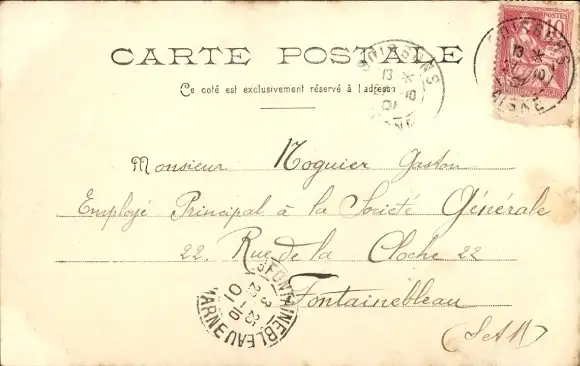 CARTE POSTALE
Ce coté est exclusivement réservé à l'adresse
POSTES
10
SOISSONS
13
10
01
AISNE
SOISSONS
13
10
01
AISNE
Monsieur Noguier Gaston
Employé Principal à la Société Générale
22. Rue de la Cloche 22
Fontainebleau
(S et M)
FONTAINEBLEAU
10
01
MARNE